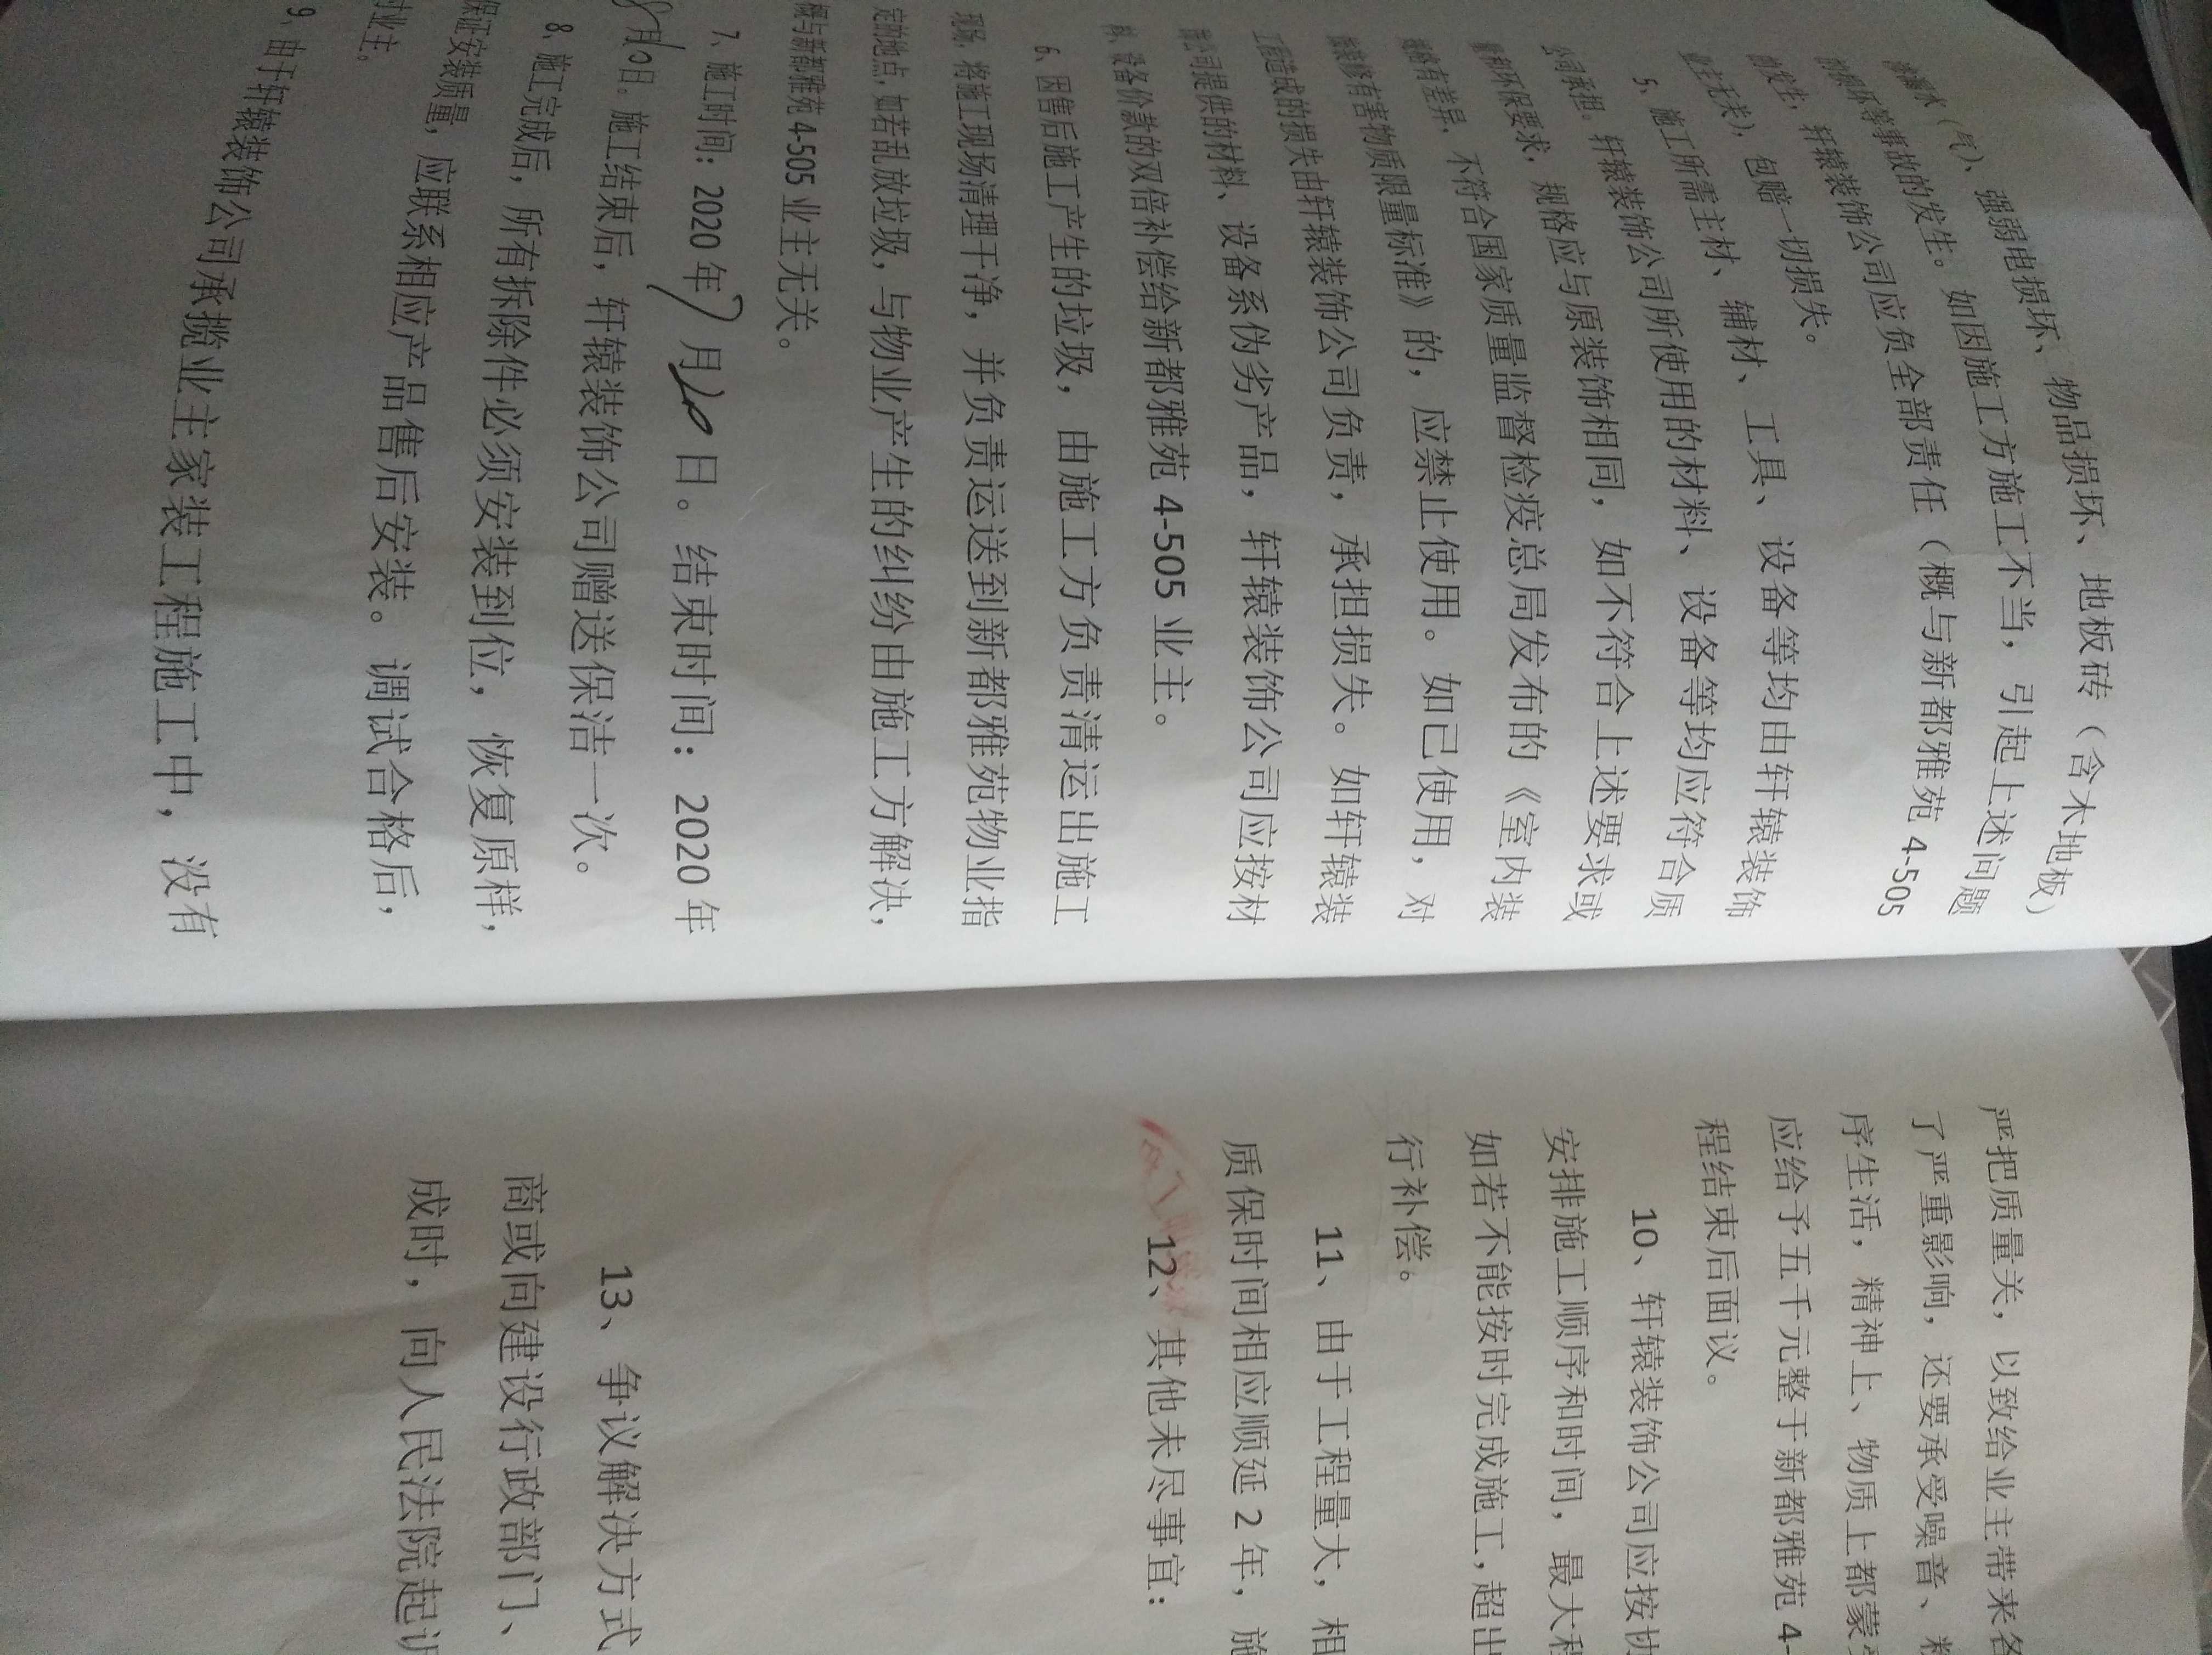 漏水（气）、强弱电损坏、物品损坏、地板砖（含木地板）
的损坏等事故的发生。如因施工方施工不当，引起上述问题
的发生，轩辕装饰公司应负全部责任（概与新都雅苑 4-505
业主无关），包赔一切损失。
5、施工所需主材、辅材、工具、设备等均由轩辕装饰
公司承担。轩辕装饰公司所使用的材料、设备等均应符合质
量和环保要求，规格应与原装饰相同，如不符合上述要求或
规格有差异，不符合国家质量监督检疫总局发布的《室内装
饰装修有害物质限量标准》的，应禁止使用。如已使用，对
工程造成的损失由轩辕装饰公司负责，承担损失。如轩辕装
饰公司提供的材料、设备系伪劣产品，轩辕装饰公司应按材
料、设备价款的双倍补偿给新都雅苑 4-505 业主。
6、因售后施工产生的垃圾，由施工方负责清运出施工
现场，将施工现场清理干净，并负责运送到新都雅苑物业指
定的地点，如若乱放垃圾，与物业产生的纠纷由施工方解决，
概与新都雅苑 4-505 业主无关。
7、施工时间：2020 年 7 月 20 日。结束时间：2020 年
8月10日。施工结束后，轩辕装饰公司赠送保洁一次。
8、施工完成后，所有拆除件必须安装到位，恢复原样，
保证安装质量，应联系相应产品售后安装。调试合格后，
业主。
9、由于轩辕装饰公司承揽业主家装工程施工中，没有
严把质量关，以致给业主带来各
了严重影响，还要承受噪音、粉
序生活，精神上、物质上都蒙受
应给予五千元整于新都雅苑 4-
程结束后面议。
10、轩辕装饰公司应按协
安排施工顺序和时间，最大程
如若不能按时完成施工，超出
行补偿。
11、由于工程量大，相
质保时间相应顺延 2 年，施
12、其他未尽事宜：
13、争议解决方式
商或向建设行政部门、
成时，向人民法院起诉